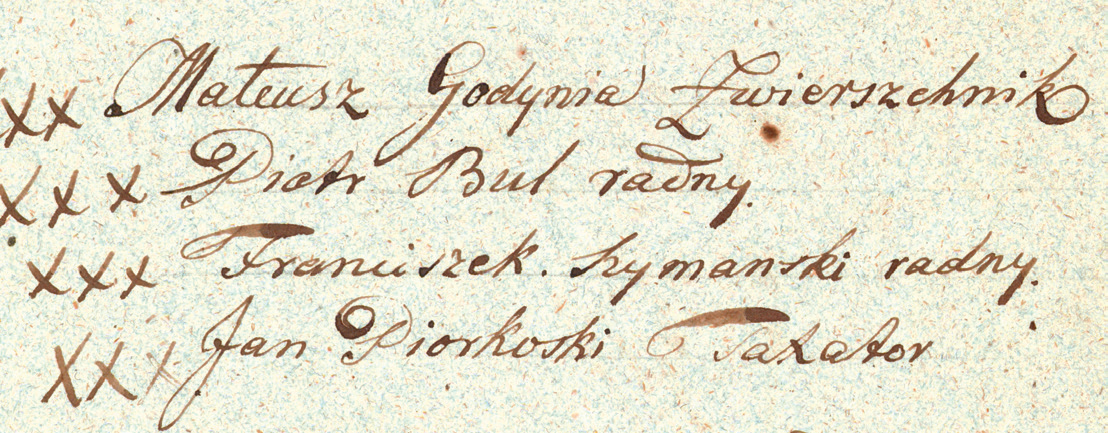 xx Mateusz Godynia Zwierszchnik
xxx Piotr Bul radny.
xxx Franciszek. Szymanski radny.
xxx Jan Piorkoski Taxator